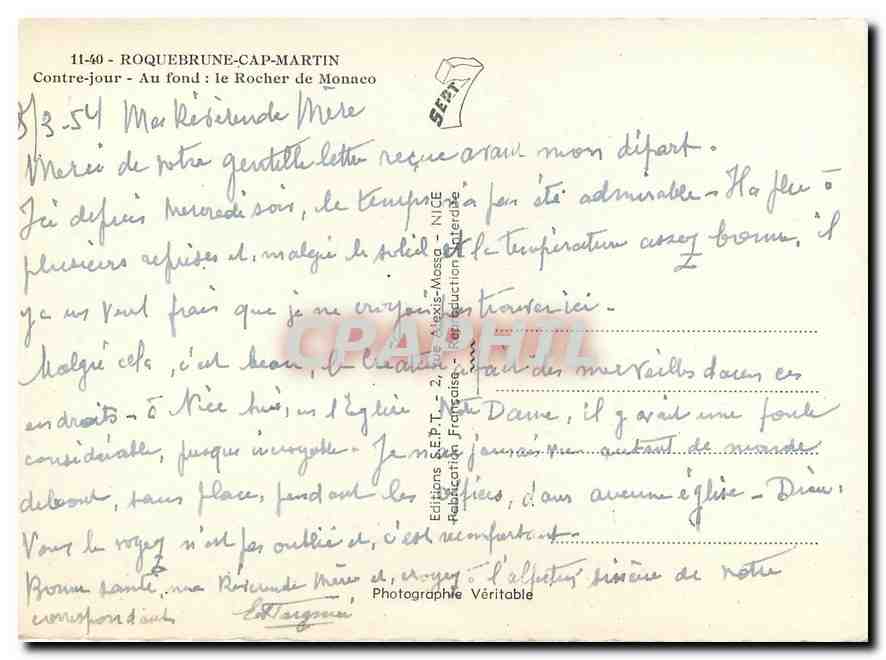 11-40 - ROQUEBRUNE-CAP-MARTIN
Contre-jour - Au fond : le Rocher de Monaco
SEPT
/3-54 Ma Révérende Mère
Merci de votre gentille lettre reçue avant mon départ.
Ici depuis mercredi soir, le temps n'a pas été admirable - Il a plu à
plusieurs reprises et, malgré le soleil et la température assez bonne, il
y a un vent frais que je ne croyais pas trouver ici -
Malgré cela, c'est beau, le Créateur a fait des merveilles dans ces
endroits - à Nice hier, en l'Eglise Notre Dame, il y avait une foule
considérable, presque incroyable - Je n'ai jamais vu autant de monde
debout, sans place, pendant les offices, dans aucune église - Dieu,
Vous le voyez n'est pas oublié et, c'est réconfortant -
Bonne santé, ma Révérende Mère et, croyez à l'affection sincère de votre
correspondante
Editions S.E.P.T. - 2, rue Alexis-Mossa - NICE
Fabrication Française - Reproduction Interdite
Photographie Véritable
CPAPHIL